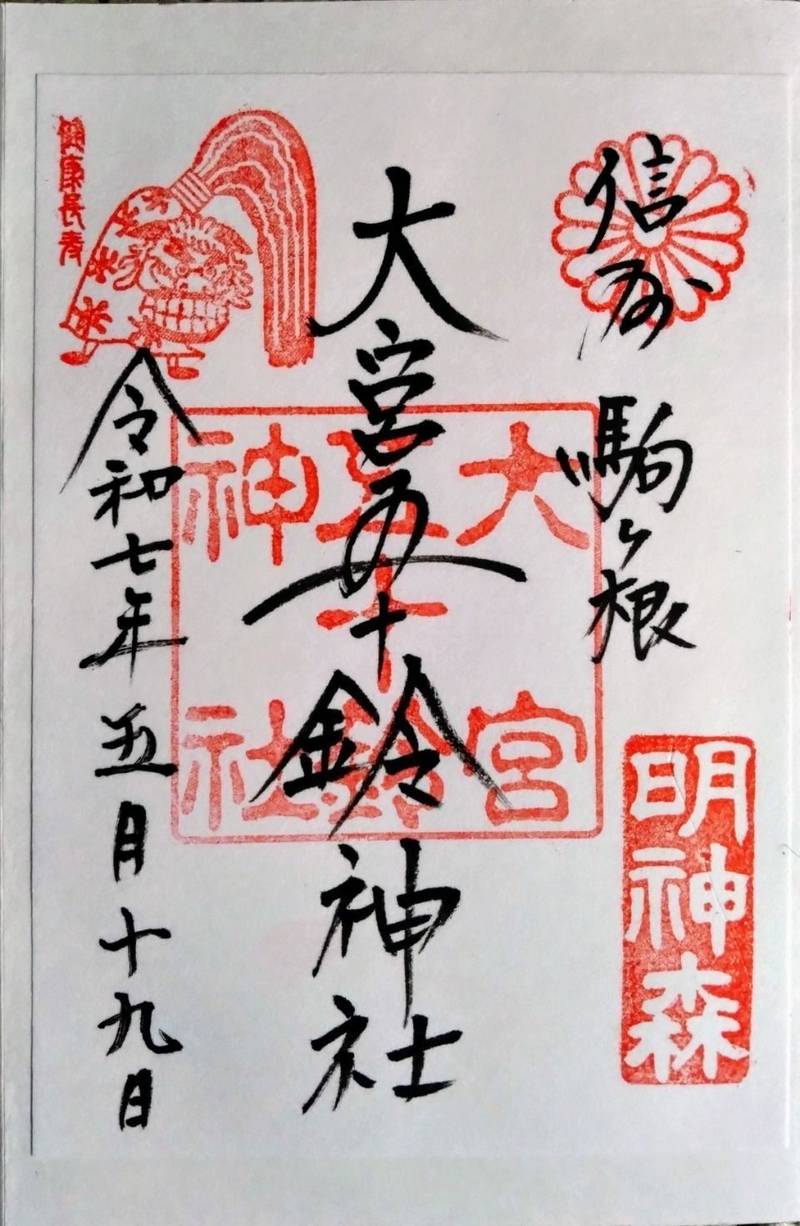 信州 駒ヶ根
明神森
大宮五十鈴神社
大宮
五十鈴
神社
令和七年五月十九日
健康長寿